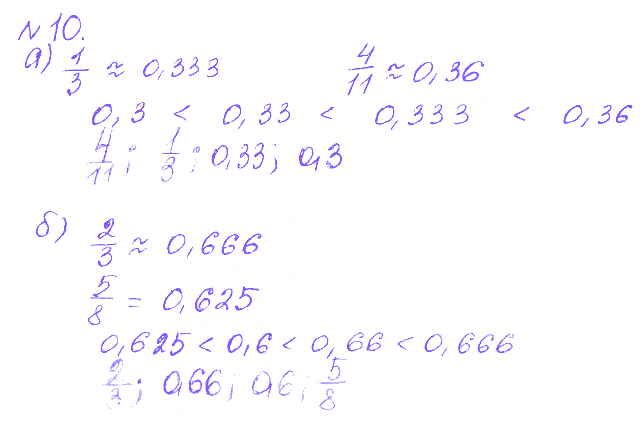 №10.
а) 1/3 ≈ 0,333 4/11 ≈ 0,36
0,3 < 0,33 < 0,333 < 0,36
4/11; 1/3; 0,33; 0,3
б) 2/3 ≈ 0,666
5/8 = 0,625
0,625 < 0,6 < 0,66 < 0,666
2/3; 0,66; 0,6; 5/8